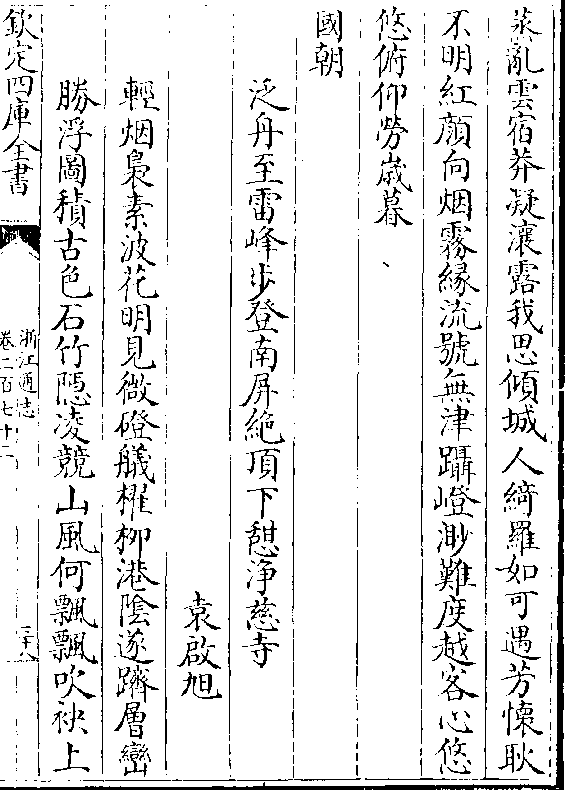 蒸亂雲宿莽凝瀼露我思傾城人綺羅如可遇芳懷耿
不明紅顔向烟霧縁流號無津躡嶝渺難度越客心悠
悠俯仰勞歲暮
國朝
泛舟至雷峰步登南屏絶頂下憩浄慈寺
袁啟旭
輕烟裊素波花明見微磴艤櫂柳港陰遂躋層巒
勝浮圖積古色石竹隠凌競山風何飄飄吹袂上
欽定四庫全書
浙江通志
卷二百七十二